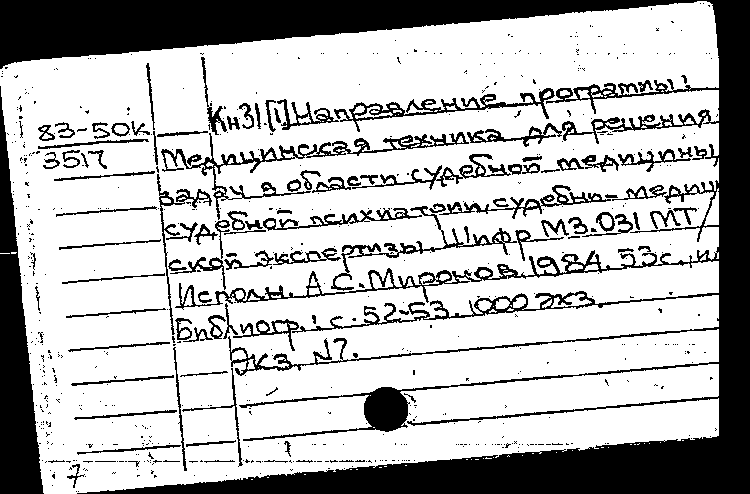 83-50К
3517
Кн31[1] Направление программы:
Медицинская техника для решения
задач в области судебной медицины,
судебной психиатрии, судебно-медици
ской экспертизы. Шифр МЗ.031 МТ/
Исполн. А.С. Миронов. 1984. 53с., ил
Библиогр.: с. 52-53. 1000 экз.
Экз. №7.
7